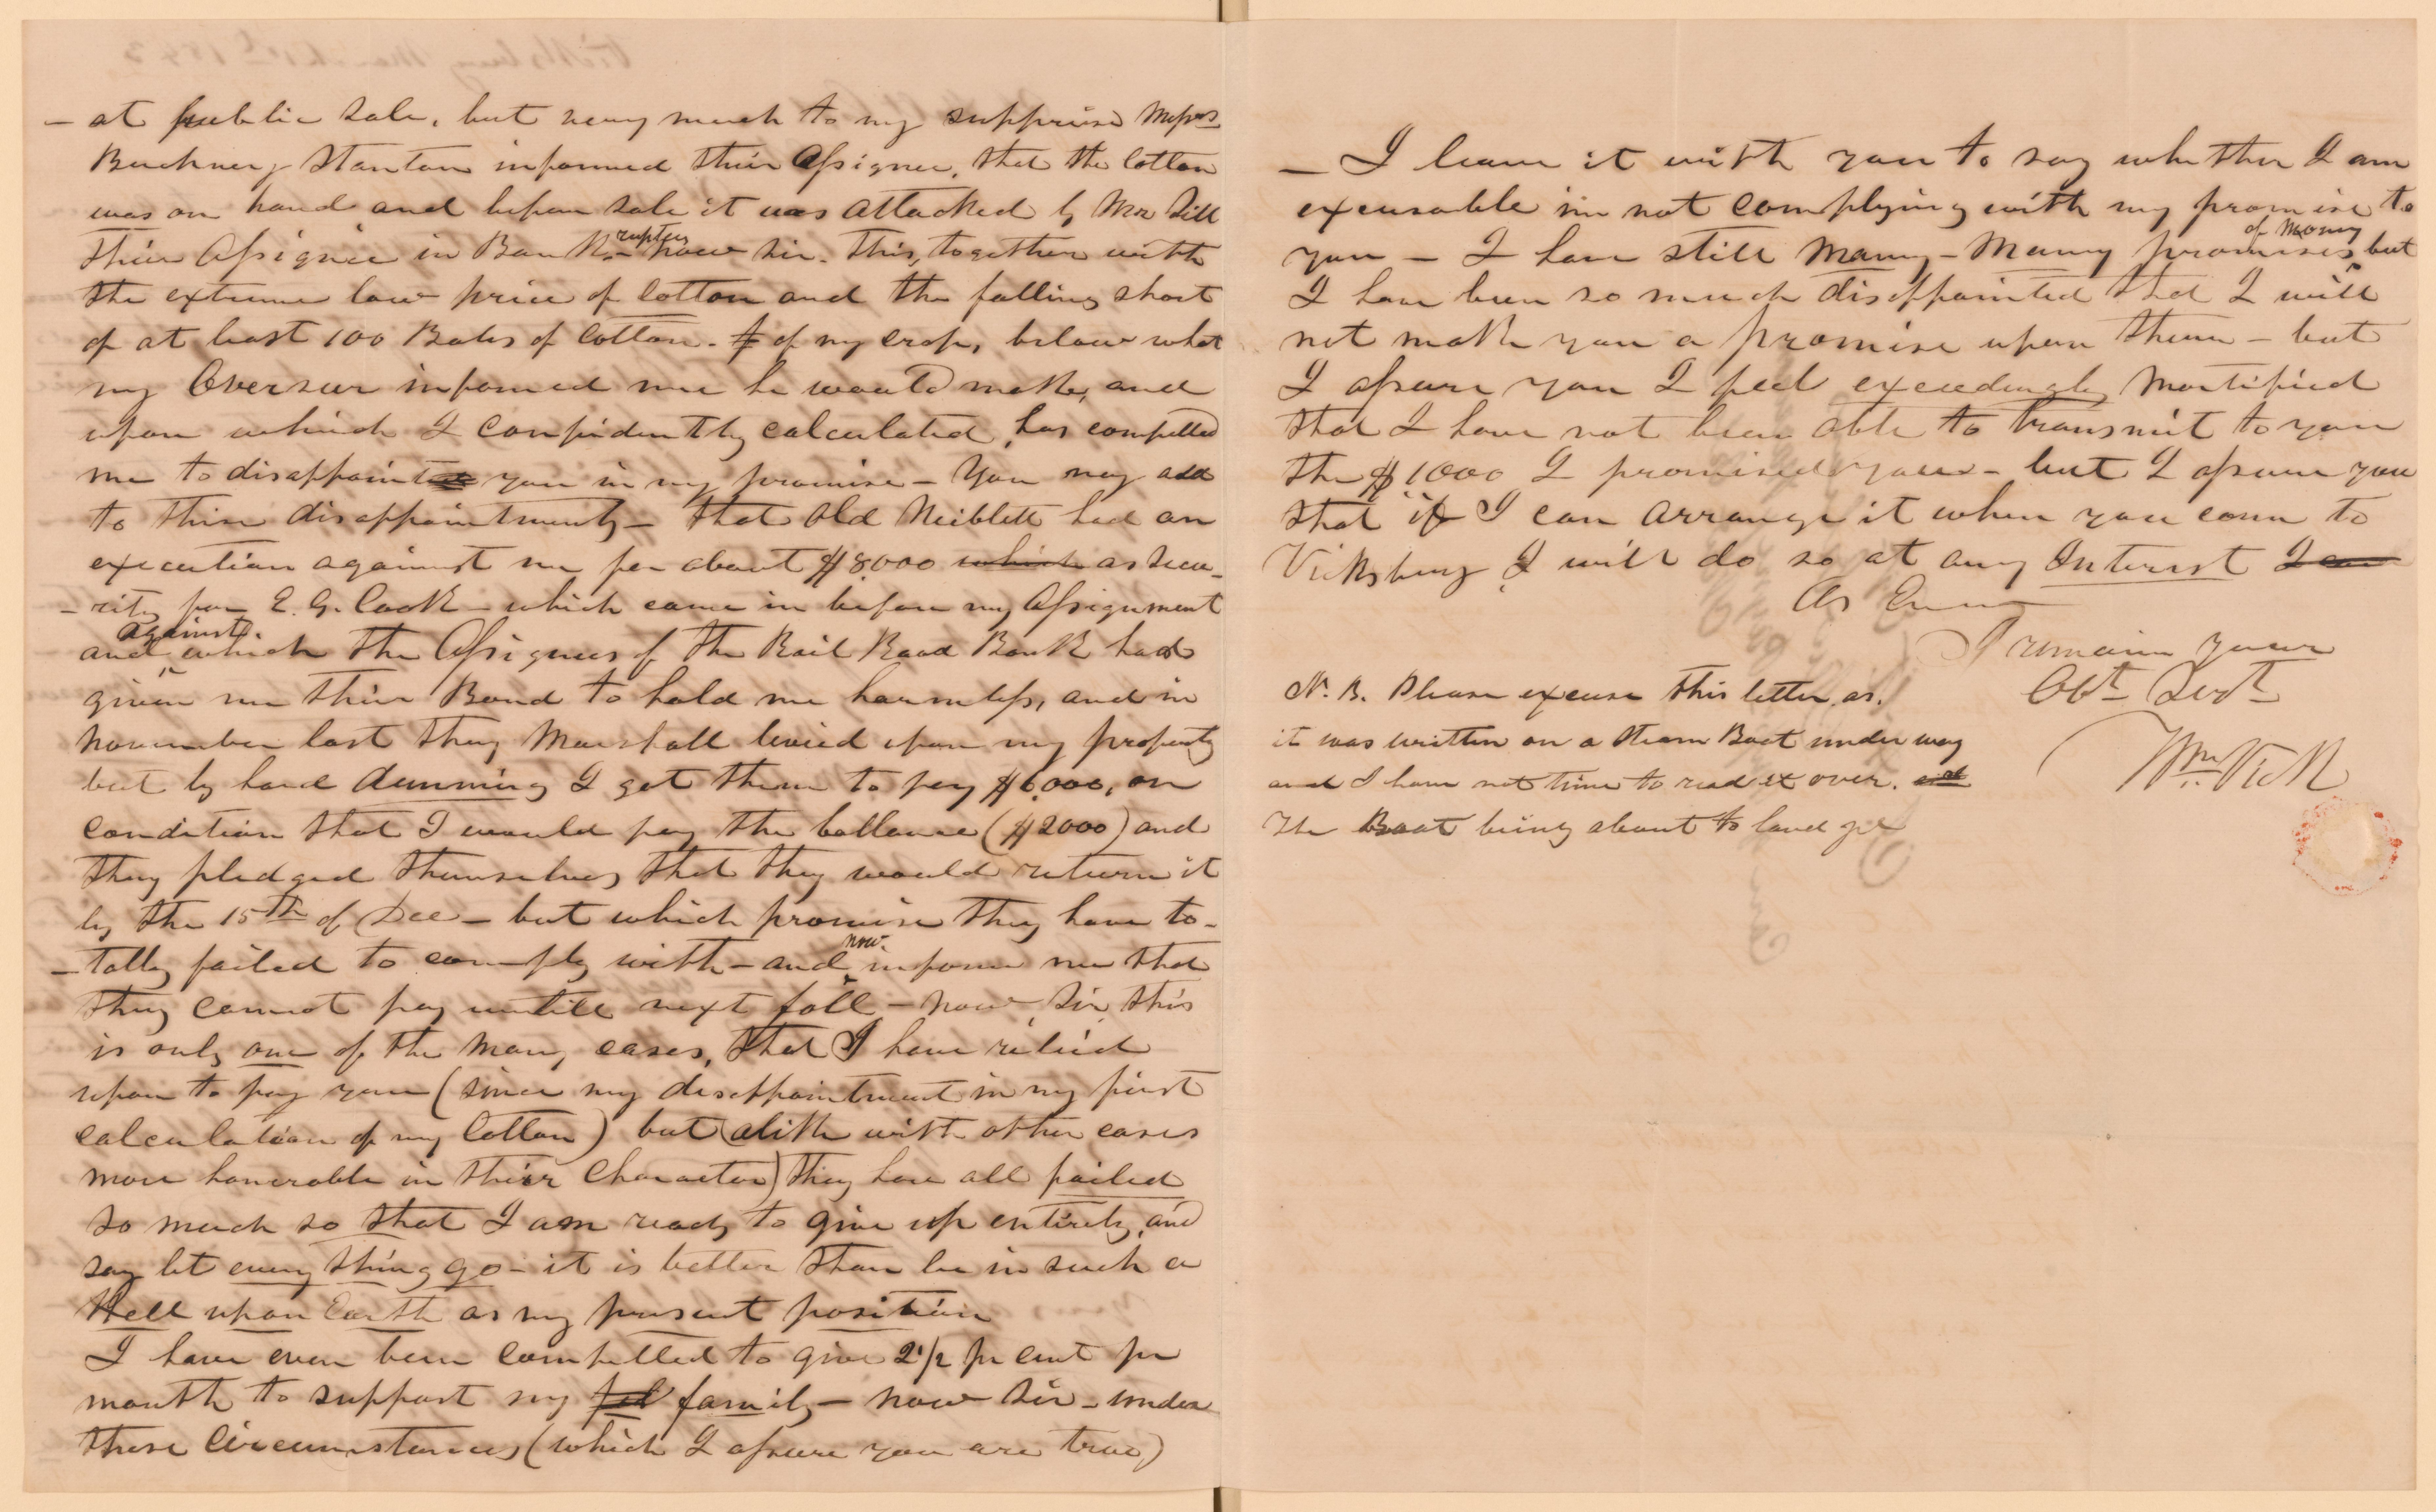 — at public sale, but very much to my supprise Messrs
Buckner & Stanton informed their Assignee, that the Cotton
was on hand and before sale it was attacked by Mr Sill
their Assignee in Bank.ruptcy - now sir. this, together with
the extreme low price of Cotton and the falling short
of at least 100 Bales of Cotton. of my crop, below what
my Overseer informed me he would make, and
upon which I confidently calculated, has compelled
me to disappoint you in my promise - You may add
to this disappointment, - that old Neiblett had an
execution against me for about $8000 which as secu-
- rity for E. G. Cook - which came in before my Assignment
and against. which the Assignees of the Rail Road Bank had
given me their Bond to hold me harmless, and in
November last they Marshall levied upon my property
but by hard dunning I got them to pay $6,000, on
condition that I would pay the ballance ($2000) and
they pledged themselves that they would return it
by the 15th of Dec - but which promise they have to-
- tally failed to comply with - and now. inform me that
they cannot pay untill next fall - now, Sir, this
is only one of the many cases, that I have relied
upon to pay you (since my disappointment in my first
calculation of my Cotton) but (alike with other cases
more honerable in their Character) they have all failed
so much so that I am ready to give up entirely, and
say let every thing go - it is better than be in such a
Hell upon Earth as my present position
I have even been compelled to give 2 1/2 pr cent pr
month to support my family - now Sir - under
these Circumstances (which I assure you are true)
— I leave it with you to say whether I am
excusable in not complying with my promise to
you - I have still Many - Many promises of Money, but
I have been so much disappointed that I will
not make you a promise upon them - but
I assure you I feel exceedingly Mortified
that I have not been able to transmit to you
the $1000 I promised you - but I assure you
that if I can arrange it when you come to
Vicksburg I will do so at any Interest
As Ever
I remain your
Obt Servt
Wm. Vick
N. B. Please excuse this letter as.
it was written on a Steam Boat under way
and I have not time to read it over. and
the Boat being about to land